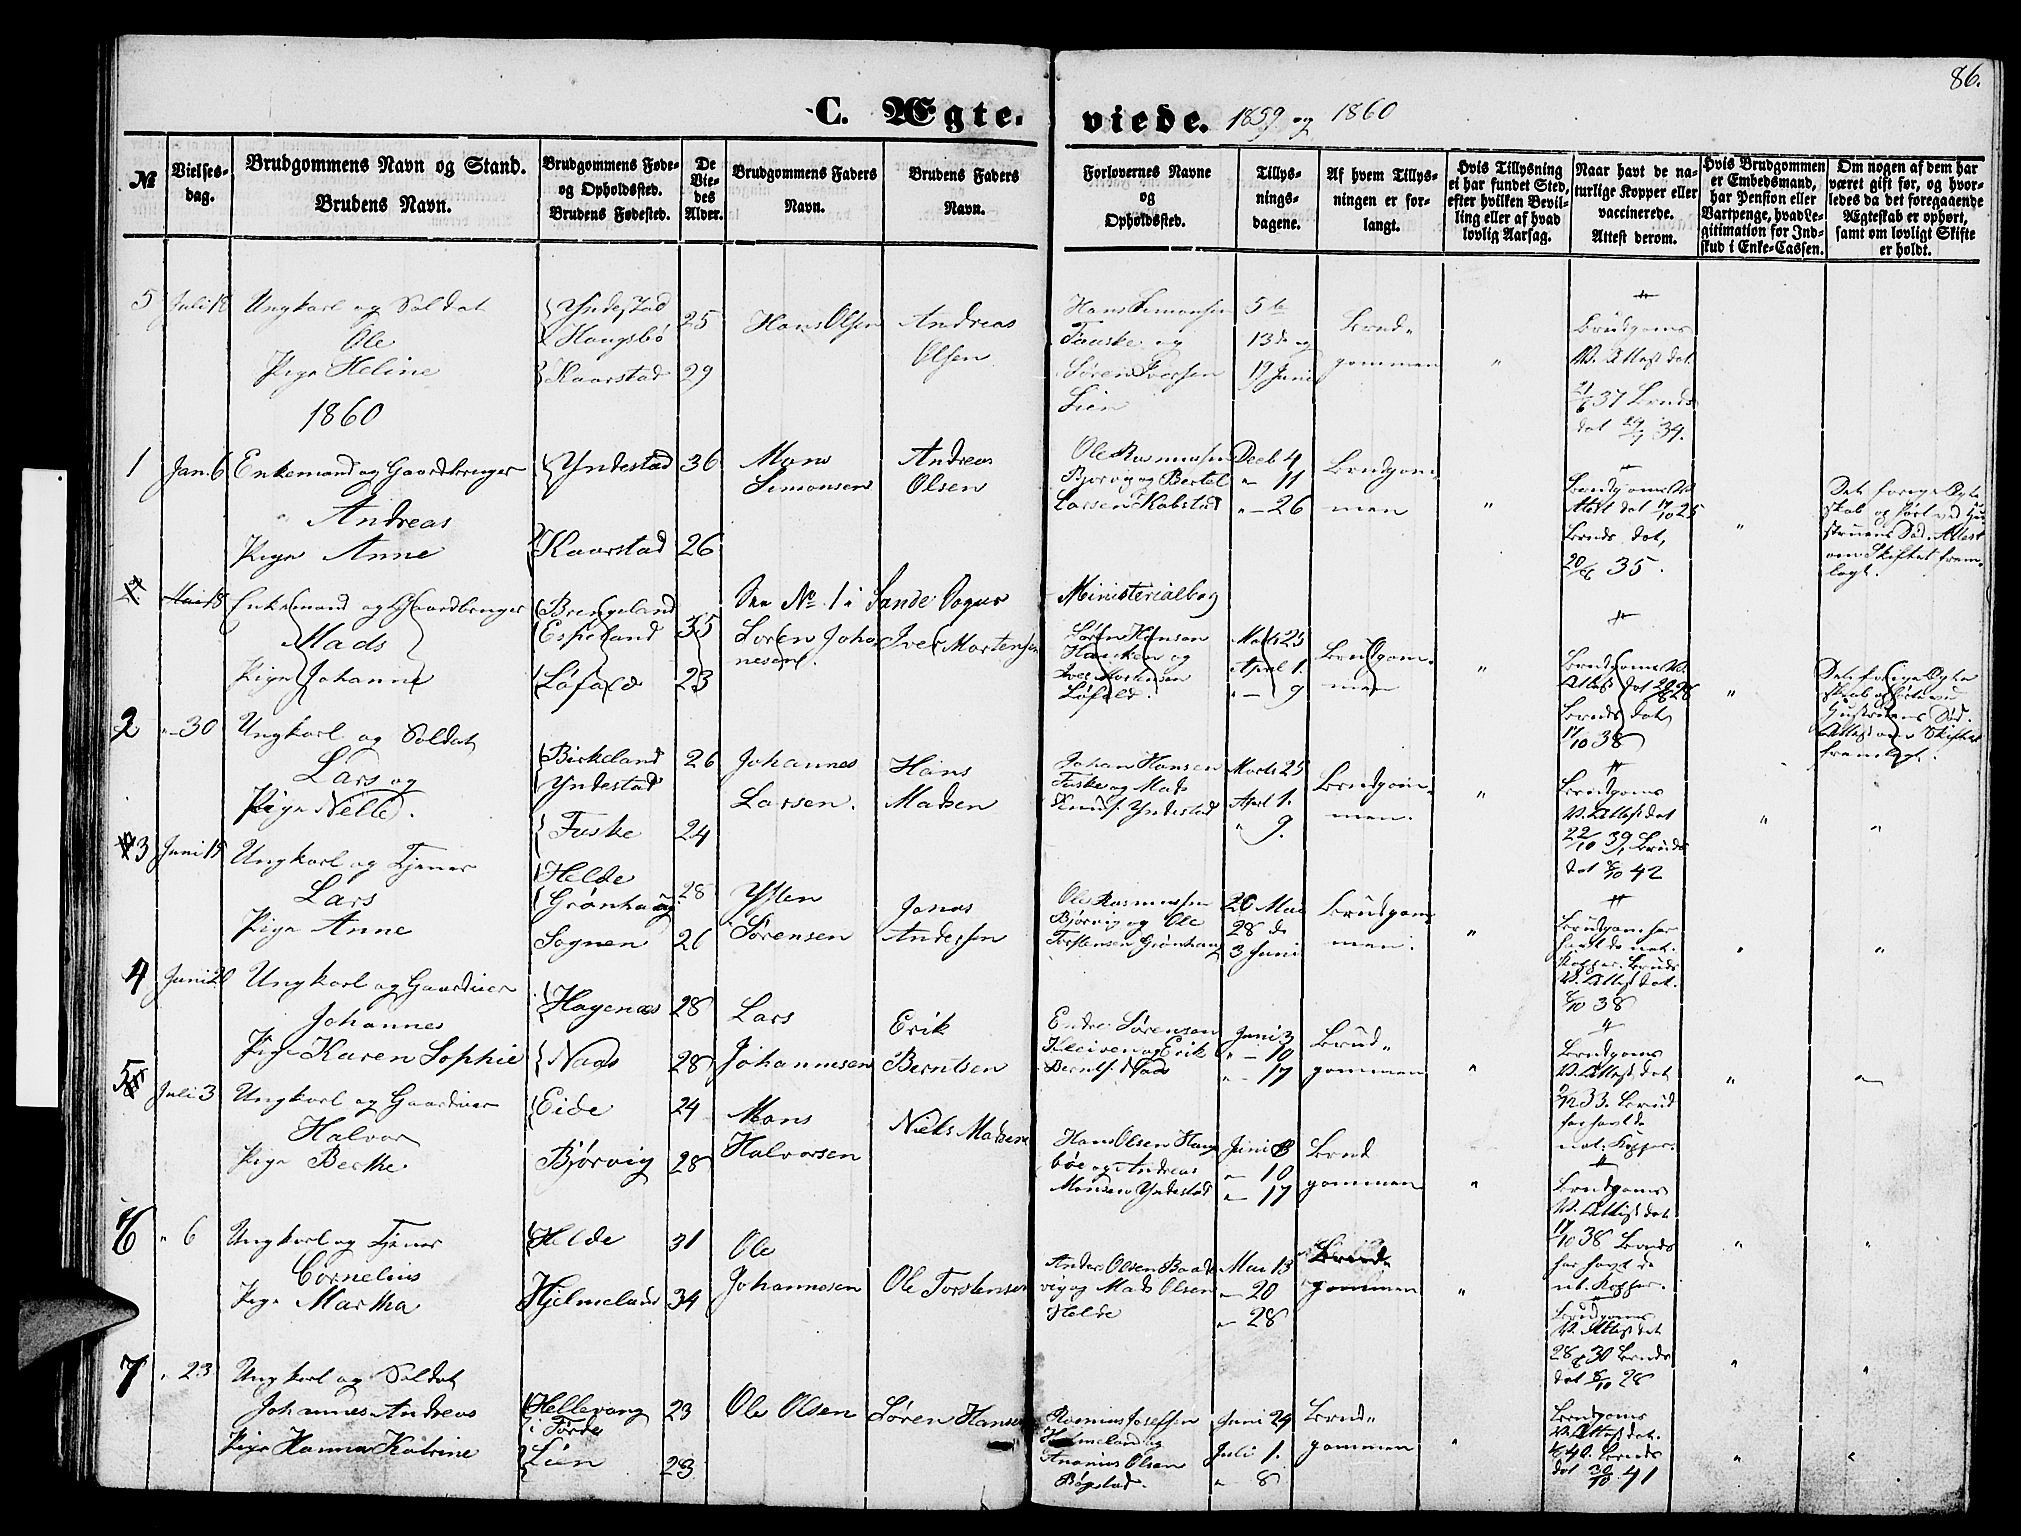 86.
C. Ægte- viede. 1859 og 1860
№
Vielses-
dag.
Brudgommens Navn og Stand.
Brudens Navn.
Brudgommens Føde-
og Opholdssted.
Brudens Fødested.
De
Vie-
des
Alder.
Brudgommens Faders
Navn.
Brudens Faders
Navn.
Forlovernes Navne
og
Opholdssted.
Tillys-
nings-
dagene.
Af hvem Tillys-
ningen er for-
langt.
Hvis Tillysning
ei har fundet Sted,
efter hvilken Bevil-
ling eller af hvad
lovlig Aarsag.
Naar havt de na-
turlige Kopper eller
vaccinerede.
Attest derom.
Hvis Brudgommen
er Embedsmand,
har Pension eller
Vartpenge, hvad Le-
gitimation for Ind-
skud i Enke-Cassen.
Om nogen af dem har
været gift før, og hvor-
ledes da det foregaaende
Ægteskab er ophørt,
samt om lovligt Skifte
er holdt.
5 Juli 18 Ungkarl og Soldat
Ole
Pige Heline
Yndestad
Haugsbø
Kaarstad
25
29
Hans Olsen
Andreas
Olsen
Hans Simonsen
Fauske og
Søren Iversen
Lien
5te
13de og
19 Juni
Brud-
gommen
"
Brudgoms
V. Attest dat
37 Bruds
dat 34.
1860
1 Jan. 6 Enkemand og Gaardbruger
Andreas
Pige Anne
Yndestad
Kaarstad
36
26
Mons
Simonsen
Andreas
Olsen
Ole Rasmussen
Bjørvig og Bertel
Larsen Kobstad
Decb 4
" 11
" 26
Brudgom-
men
"
Brudgoms V.
Attest dat 17/10 25
Bruds dat,
35.
"
Det forige Ægte-
skab ophørt ved Hu-
struens Død. Attest
om Skiftet frem-
lagt.
Mai 18 Enkemand og Gaardbruger
Mads
Pige Johanne
Brengeland
Espeland
Løfald
35
23
See No. 1 i Sande Sogns Ministerialbog
Søren Johan-
nesen.
Iver Mortensen
Søren Hansen
Hauken og
Iver Mortensen
Løfald.
Marts 25
April 1.
" 9
Brudgom-
men
"
Brudgoms V.
Attest dat 28
Bruds dat
17/10 38
"
Det forige Ægte-
skab ophørt ved
Hustruens Død.
Attest om Skiftet
fremlagt.
2 " 30 Ungkarl og Soldat
Lars og
Pige Nelle.
Birkeland
Yndestad
Fuske
26
24
Johannes
Larsen.
Hans
Madsen
Johan Hansen
Fuske og Mads
Knuds. Yndestad
Marts 25
April 1.
" 9.
Brudgom-
men.
"
Brudgoms
V. Attest dat
22/10 39 Bruds
dat 42
"
"
3 Juni 15 Ungkarl og Tjener
Lars
Pige Anne
Helde
Grønhaug
Sognen
28
26
Ysten
Sørensen
Jonas
Andersen
Ole Rasmussen
Bjørvig og Ole
Torstensen Grønhaug
20 Mai
28 de
3 Juni
Brudgom-
men.
"
Brudgom har
havt de nat.
Kopper. Bruds
V. Attest dat.
38
"
"
4 Juni 20 Ungkarl og Gaardeier
Johannes
Pige Karen Sophie
Høgenæs
Naas
28
28
Lars
Johannesen
Erik
Berntsen
Endre Sørensen
Kleiven og Erik
Berntsd Naas
Juni 3
" 10
" 17
Brud-
gommen
"
Brudgoms
V. Attest dat
33. Brud
har havt de
nat. Kopper.
"
"
5 Juli 3 Ungkarl og Gaardeier
Halvor
Pige Berthe
Eide
Bjørvig
24
28
Mons
Halvorsen
Niels Madsen
Hans Olsen Haug-
bøe og Andreas
Monsen Yndestad
Juni 3
" 10
" 17
Brud
gommen
"
Brudgoms
V. Attest dat
17/10 38 Bruds
har havt de
nt. Kopper.
"
"
6 " 6 Ungkarl og Tjener
Cornelius
Pige Martha
Helde
Hjelmeland
31
34
Ole
Johannesen
Ole Torstensen
Anders Olsen Baade-
vig og Mads Olsen
Helde
Mai 13
" 20
" 28
Brud-
gommen
"
Brudgoms
V. Attest dat
30 Bruds
dat 28
"
"
7 " 23 Ungkarl og Soldat
Johannes Andreas
Pige Hanna Katrine
Hellevang
i Førde
Lien
23
23
Ole Olsen
Søren Hansen
Rasmus Josefsen
Hjelmeland og
Ananias Olsen
Bøgstad.
Juni 24
Juli 1.
" 8
Brud-
gommen
"
Brudgoms
V. Attest dat.
40. Bruds
dat 41
"
"